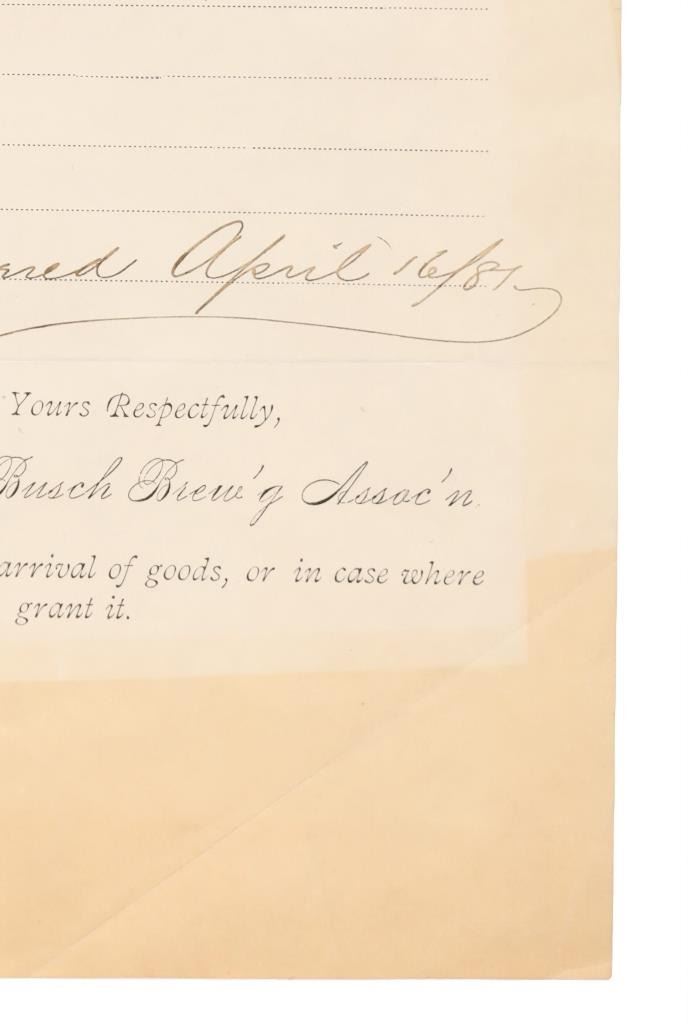 April 16/81.
Yours Respectfully,
Busch Brew'g Assoc'n.
arrival of goods, or in case where
grant it.